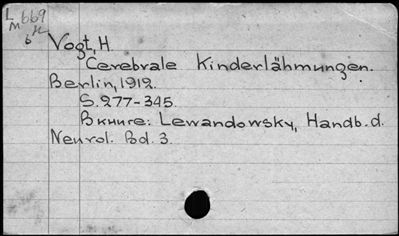 L 669
M
b н
Vogt, H.
Cerebrale Kinderlähmungen.
Berlin, 1912.
S. 277-345.
В книге: Lewandowsky, Handb. d.
Neurol. Bd. 3.